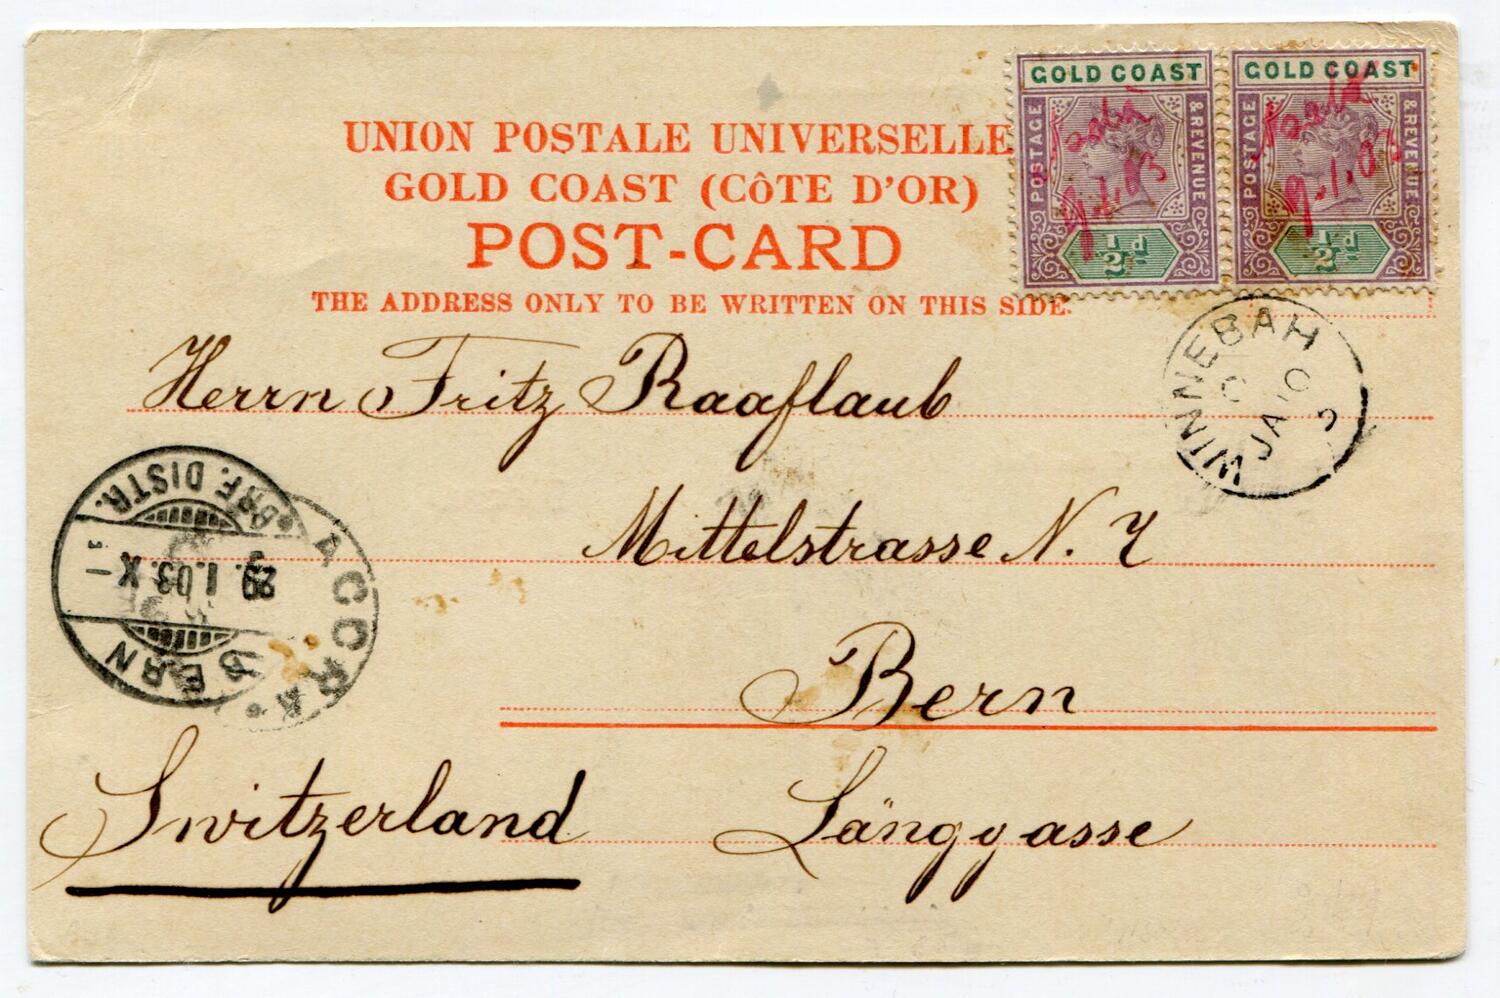 UNION POSTALE UNIVERSELLE
GOLD COAST (CôTE D'OR)
POST-CARD
THE ADDRESS ONLY TO BE WRITTEN ON THIS SIDE.
GOLD COAST
POSTAGE & REVENUE
½d
9.1.03
GOLD COAST
POSTAGE & REVENUE
½d
9.1.03
WINNEBAH
C
JA 10
3
Herrn Fritz Raaflaub
Mittelstrasse N. 7
Bern
Switzerland
Länggasse
BERN
29. I. 03. X
BRF. DISTR.
ACCRA